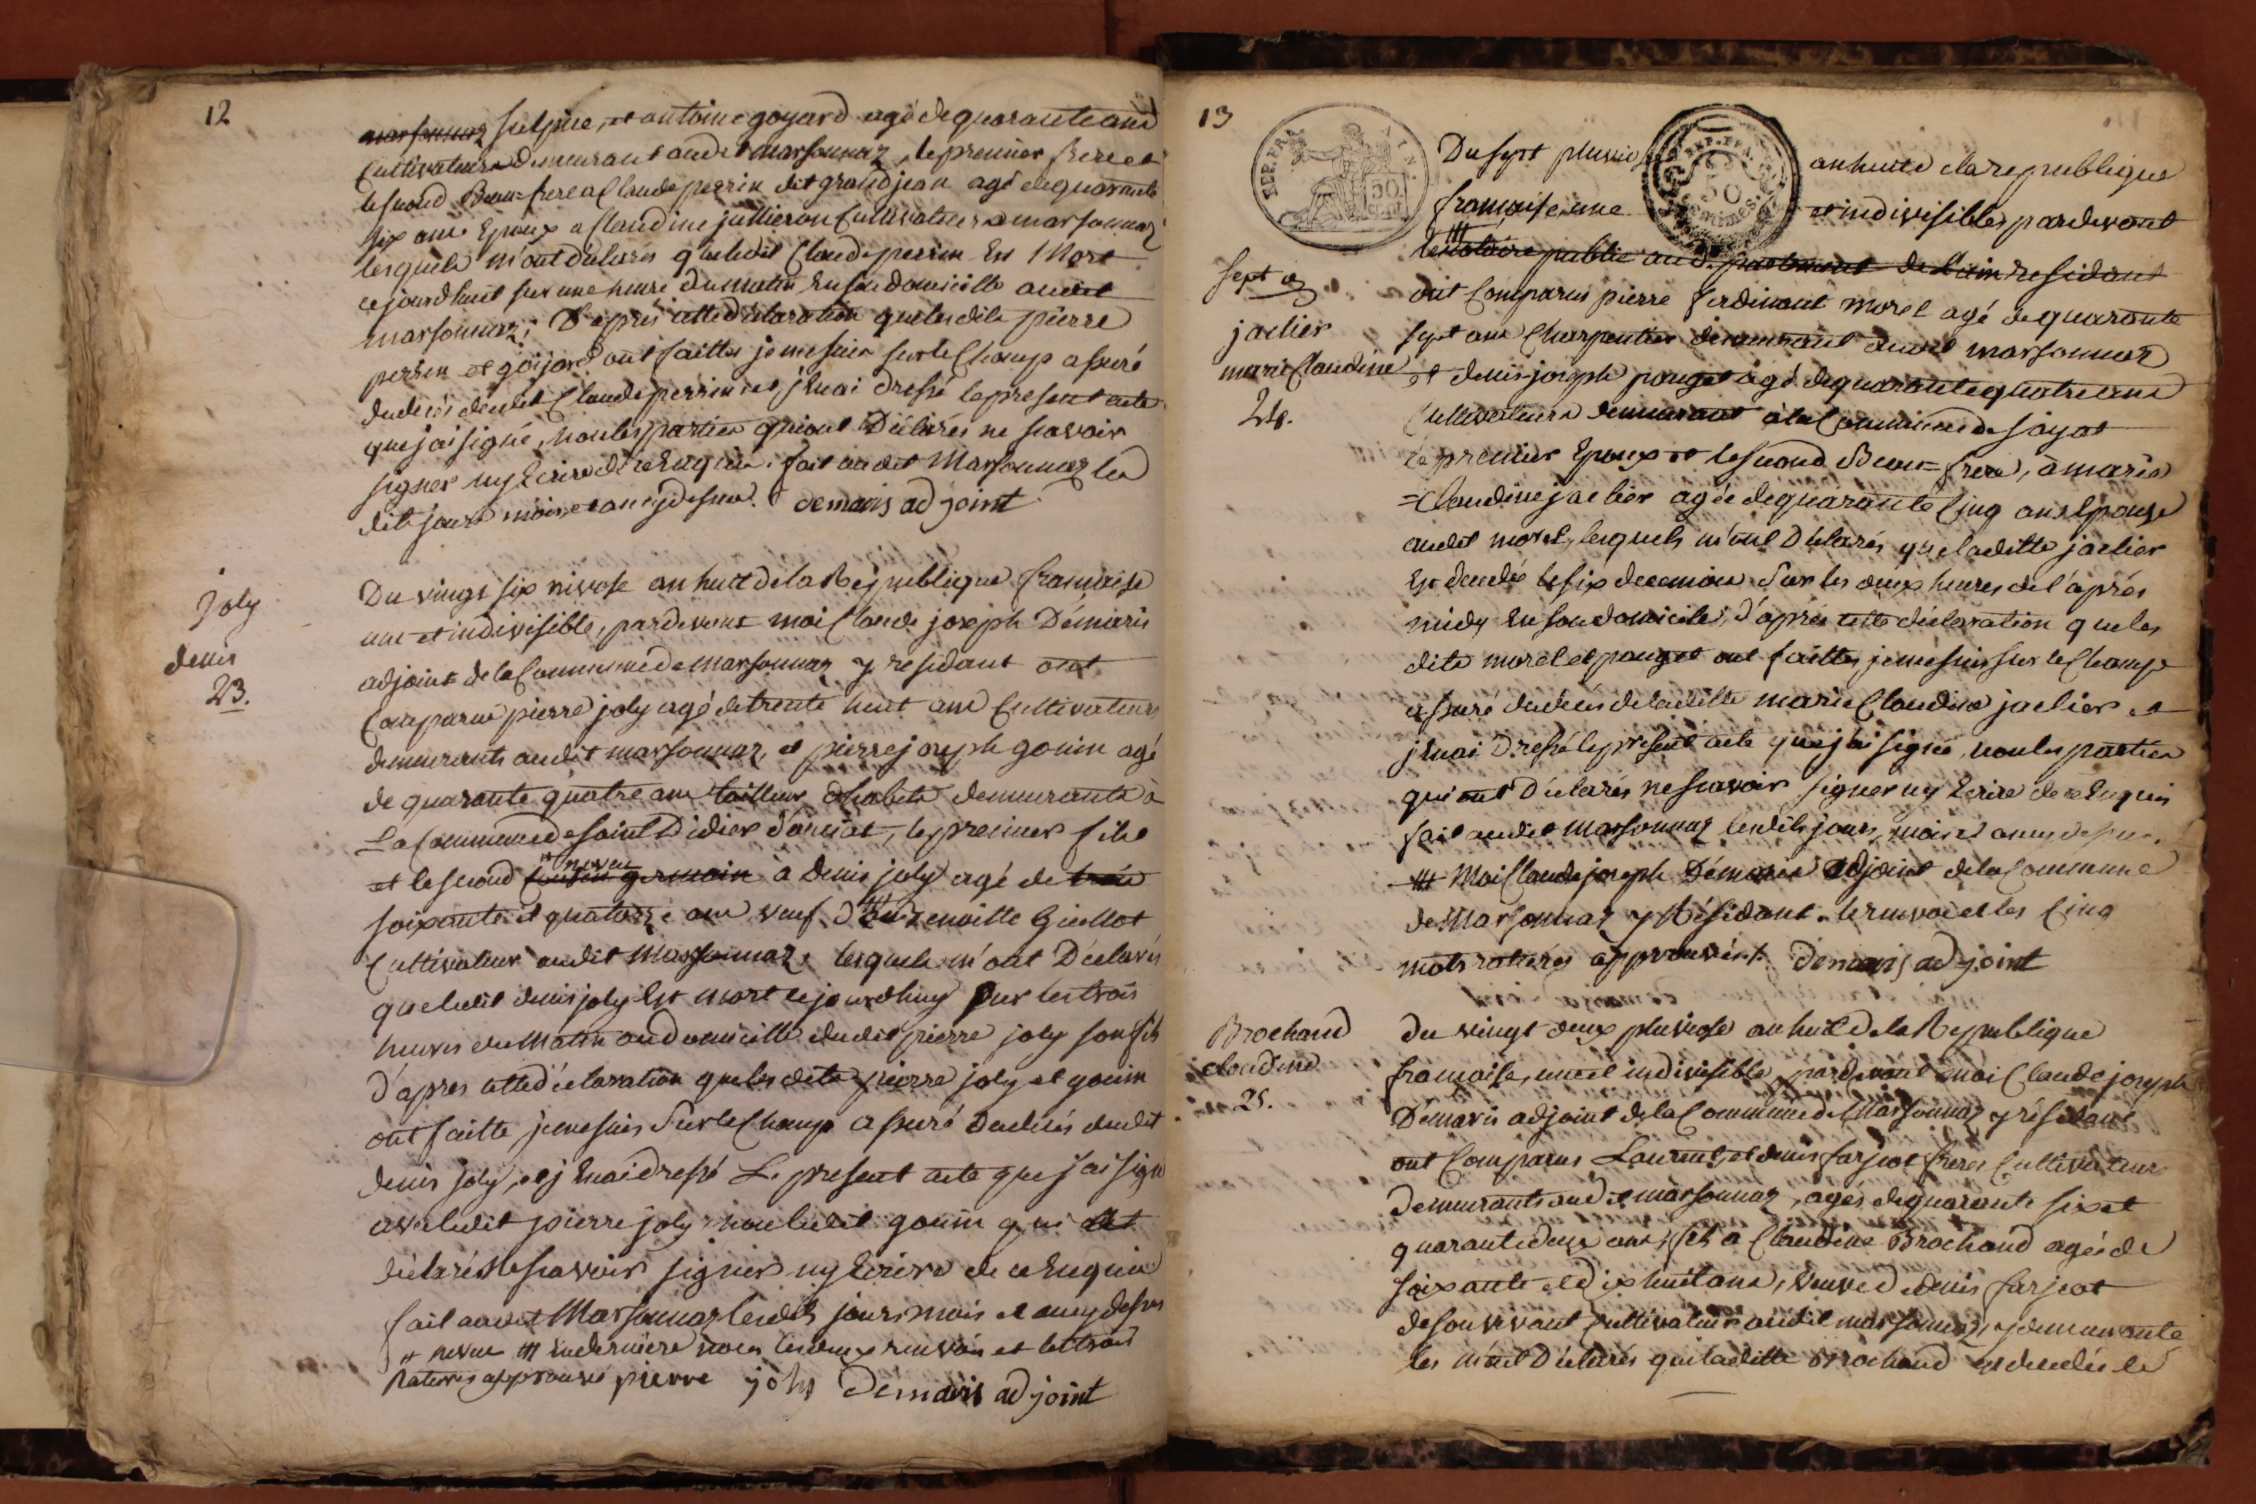 12
marsonnaz Sulpice, et antoine goyard agé de quarante ans
Cultivateurs demeurant audit marsonnaz, le premier frere et
le second Beau=frere a Claude perrin dit grandjean agé de quarante
six ans Epoux a Claudine jullieron Cultivateur a marsonnaz
lesquels m'ont déclarés que ledit Claude perrin Est Mort
ce jourdhuit sur une heure du matin En son domicille audit
marsonnaz; D'apres cette déclaration que lesdits pierre
perrin et goijard ont faittes je me suis sur le Champ assuré
du décès dudit Claude perrin et j'Enai dressé le present acte
que jai signé, non les parties qui ont Déclarés ne scavoir
signer ny Ecrire de ce Enquis. fait audit Marsonnaz les
dits jours mois et an cydessus. demaris adjoint
joly
denis
23.
Du vingt six nivose an huit de la Republique francoise
une et indivisible, pardevant moi Claude joseph Démaris
adjoint de la Commune de marsonnaz y residant ont
Comparus pierre joly agé de trente huit ans Cultivateur
demeurants audit marsonnaz, et pierre joseph gouin agé
de quarante quatre ans tailleur d'habits demeurants à
La Commune de saint Didier d'aussiat, le premier fils
# neveu
et le second cousin germain à Denis joly agé de trois
soixante et quatorze ans veuf d' benoitte Guillot
Cultivateur audit Marsonnaz, lesquels m'ont Déclarés
que ledit denis joly Est mort ce jourdhuy sur les trois
heures du Matin au domicille dudit pierre joly son fils
d'apres cette déclaration que lesdits pierre joly et gouin
ont faitte, je me suis Sur le Champ assuré du décés dudit
denis joly, et j'Enai dressé Le present acte que j'ai signé
avec ledit pierre joly non ledit gouin qui at
déclarés Ne scavoir signer ny Ecrire de ce Enquis
fait audit Marsonnaz lesdits jours mois et an cy dessus
# neveu ## En derniere noces les deux renvois et les trois
raturés approuvés pierre joly Demaris adjoint
13
REP. FRA.
50
CENT.
REP. FRA.
50
Centimes.
Du sept pluvios an huite de la republique
francoise une et indivisible, pardevant
## le Notaire public au département de l'ain residant
ont Comparus pierre ferdinant morel agé de quarante
sept ans Charpentier demeurant audit marsonnaz
et denis joseph pouget agé de quarante quatre ans
Cultivateurs demeurant à la Commune de jayat
le premier Epoux et le second Beau=frere, à marie
=Claudine jaclier agée de quarante Cinq ans Epouse
audit morel, lesquels m'ont Déclarés que laditte jaclier
Est décedée le six de ce mois Sur les deux heures de l'aprés
midy En son domicile, d'aprés cette déclaration que les
dits morel et pouget ont faittes je me suis sur le Champ
assuré du décès de laditte marie Claudine jaclier et
j'Enai Dressé le present acte que j'ai signé, non les parties
qui ont Déclarés ne scavoir signer ny Ecrire de ce Enquis
fait audit Marsonnaz lesdits jours, mois et an cy dessus.
## Moi Claude joseph Démaris adjoint de la Commune
de Marsonnaz y Résidant. le renvoi et les Cinq
mots raturés approuvés. Demaris adjoint
jaclier
marie Claudine
24.
Brochand
claudine
25.
du vingt deux pluviose an huit de la Republique
francoise, une et indivisible, pardevant moi Claude joseph
Démaris adjoint de la Commune de Marsonnaz y résidant
ont Comparus Laurent, et denis farjeot freres Cultivateurs
demeurants audit marsonnaz, agés de quarante six et
quarante deux ans, fils a Claudine Brochand agée de
soixante et dix huit ans, Veuve de denis farjeot
de son vivant Cultivateur audit marsonnaz, y demeurante
les m'ont Déclarés que laditte Brochand est decedée le